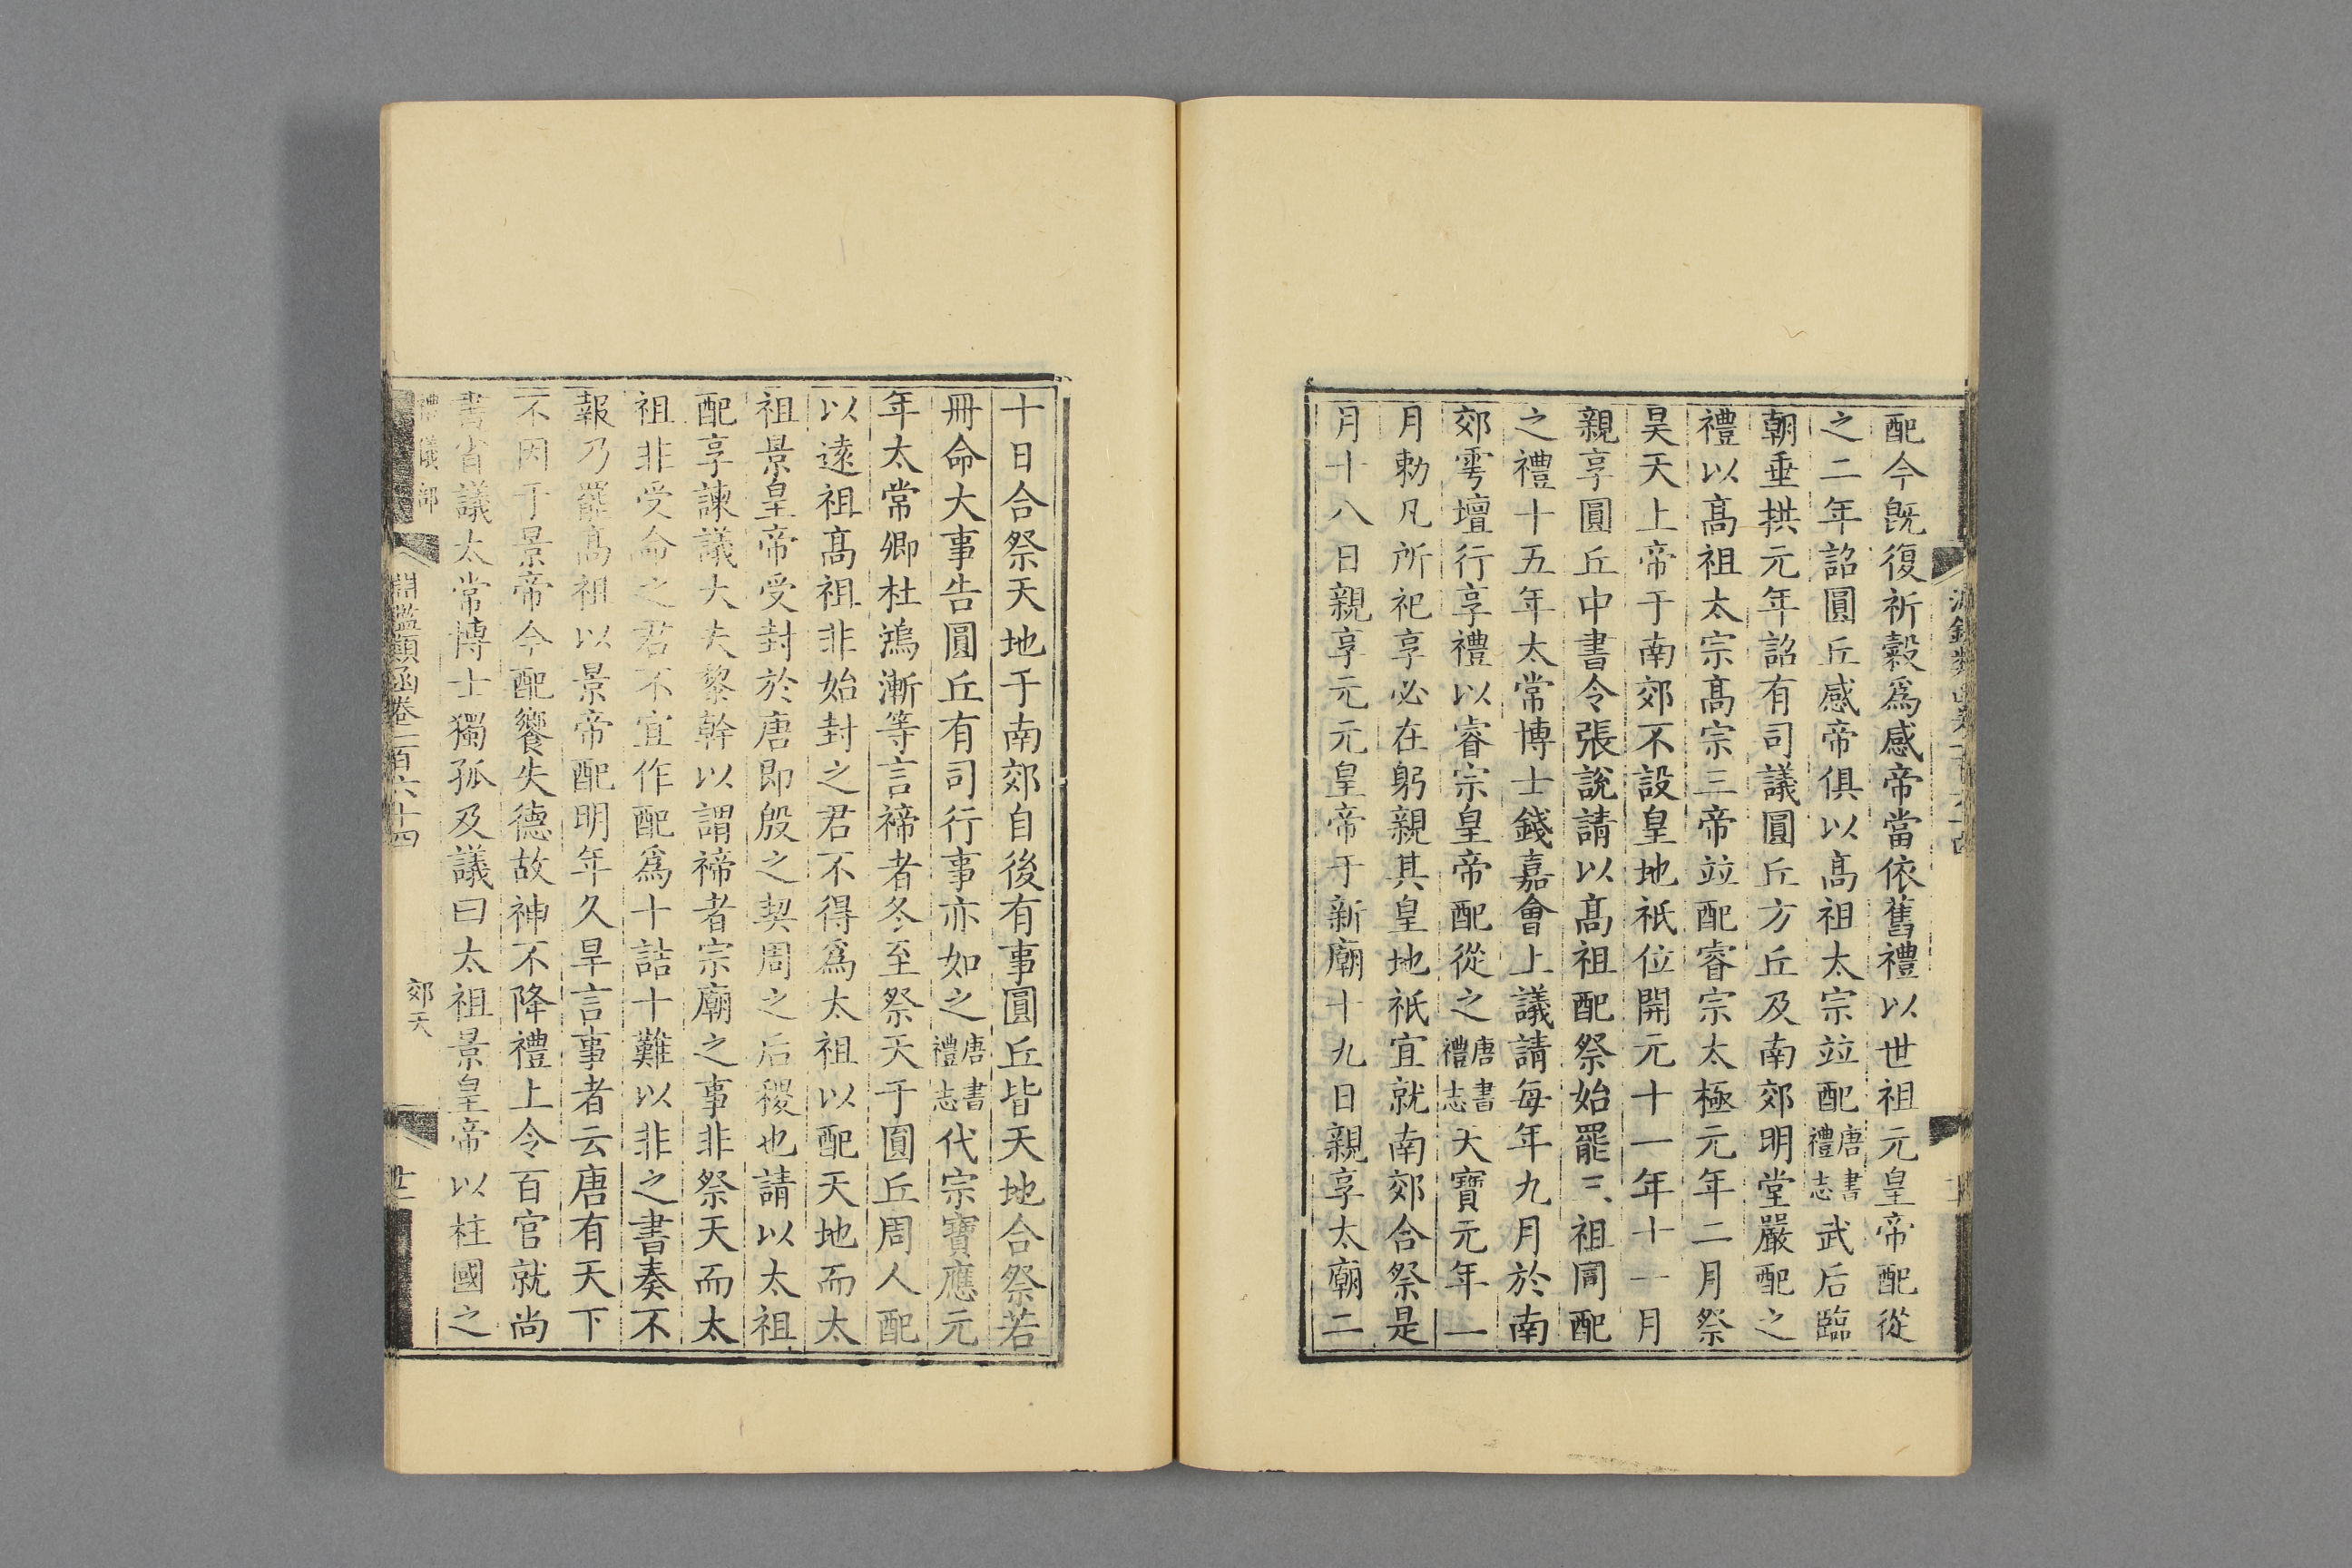 配今旣復祈穀爲感帝當依舊禮以世祖元皇帝配從
之二年詔圓丘感帝俱以高祖太宗竝配唐書禮志武后臨
朝垂拱元年詔有司議圓丘方丘及南郊明堂嚴配之
禮以高祖太宗高宗三帝竝配睿宗太極元年二月祭
昊天上帝于南郊不設皇地祇位開元十一年十一月
親享圓丘中書令張說請以高祖配祭始罷三祖同配
之禮十五年太常博士錢嘉會上議請每年九月於南
郊雩壇行享禮以睿宗皇帝配從之唐書禮志天寶元年一
月勅凡所祀享必在躬親其皇地祇宜就南郊合祭是
月十八日親享元元皇帝于新廟十九日親享太廟二
十日合祭天地于南郊自後有事圓丘皆天地合祭若
冊命大事告圓丘有司行事亦如之唐書禮志代宗寶應元
年太常卿杜鴻漸等言禘者冬至祭天于圓丘周人配
以遠祖高祖非始封之君不得爲太祖以配天地而太
祖景皇帝受封於唐即殷之契周之后稷也請以太祖
配享諫議大夫黎幹以謂禘者宗廟之事非祭天而太
祖非受命之君不宜作配爲十詰十難以非之書奏不
報乃罷高祖以景帝配明年久旱言事者云唐有天下
不因于景帝今配饗失德故神不降禮上令百官就尚
書省議太常博士獨孤及議曰太祖景皇帝以柱國之
禮儀部
淵鑑類函卷一百六十四
郊天